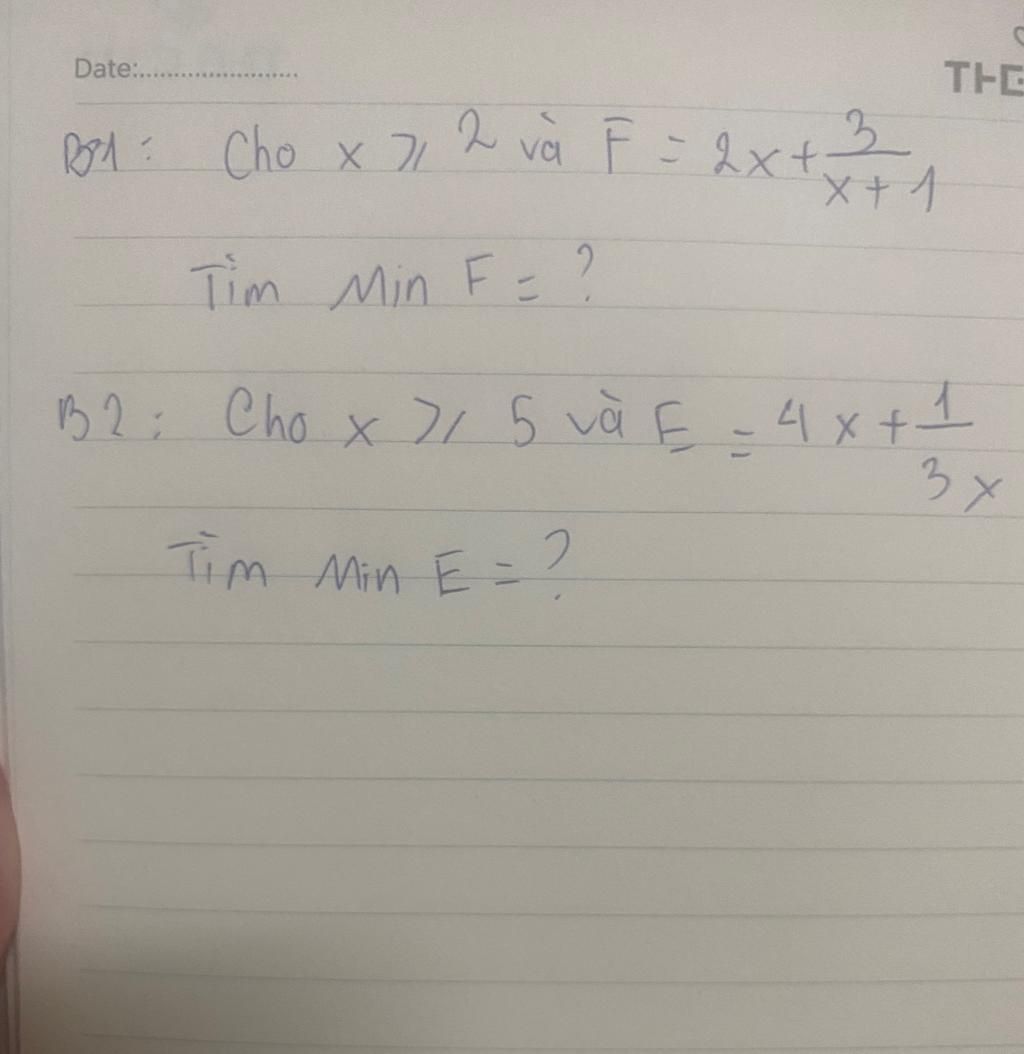 Date:........................
THE
B1: Cho x ≥ 2 và F = 2x + 3/(x + 1)
Tìm Min F = ?
B2: Cho x ≥ 5 và E = 4x + 1/(3x)
Tìm Min E = ?